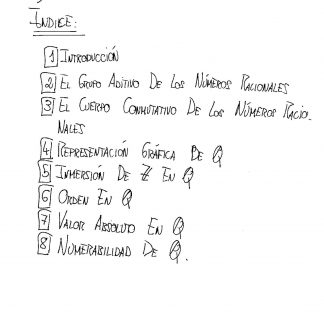 ÍNDICE:
1 INTRODUCCIÓN
2 EL GRUPO ADITIVO DE LOS NÚMEROS RACIONALES
3 EL CUERPO CONMUTATIVO DE LOS NÚMEROS RACIO-
NALES
4 REPRESENTACIÓN GRÁFICA DE ℚ
5 INMERSIÓN DE ℤ EN ℚ
6 ORDEN EN ℚ
7 VALOR ABSOLUTO EN ℚ
8 NUMERABILIDAD DE ℚ.